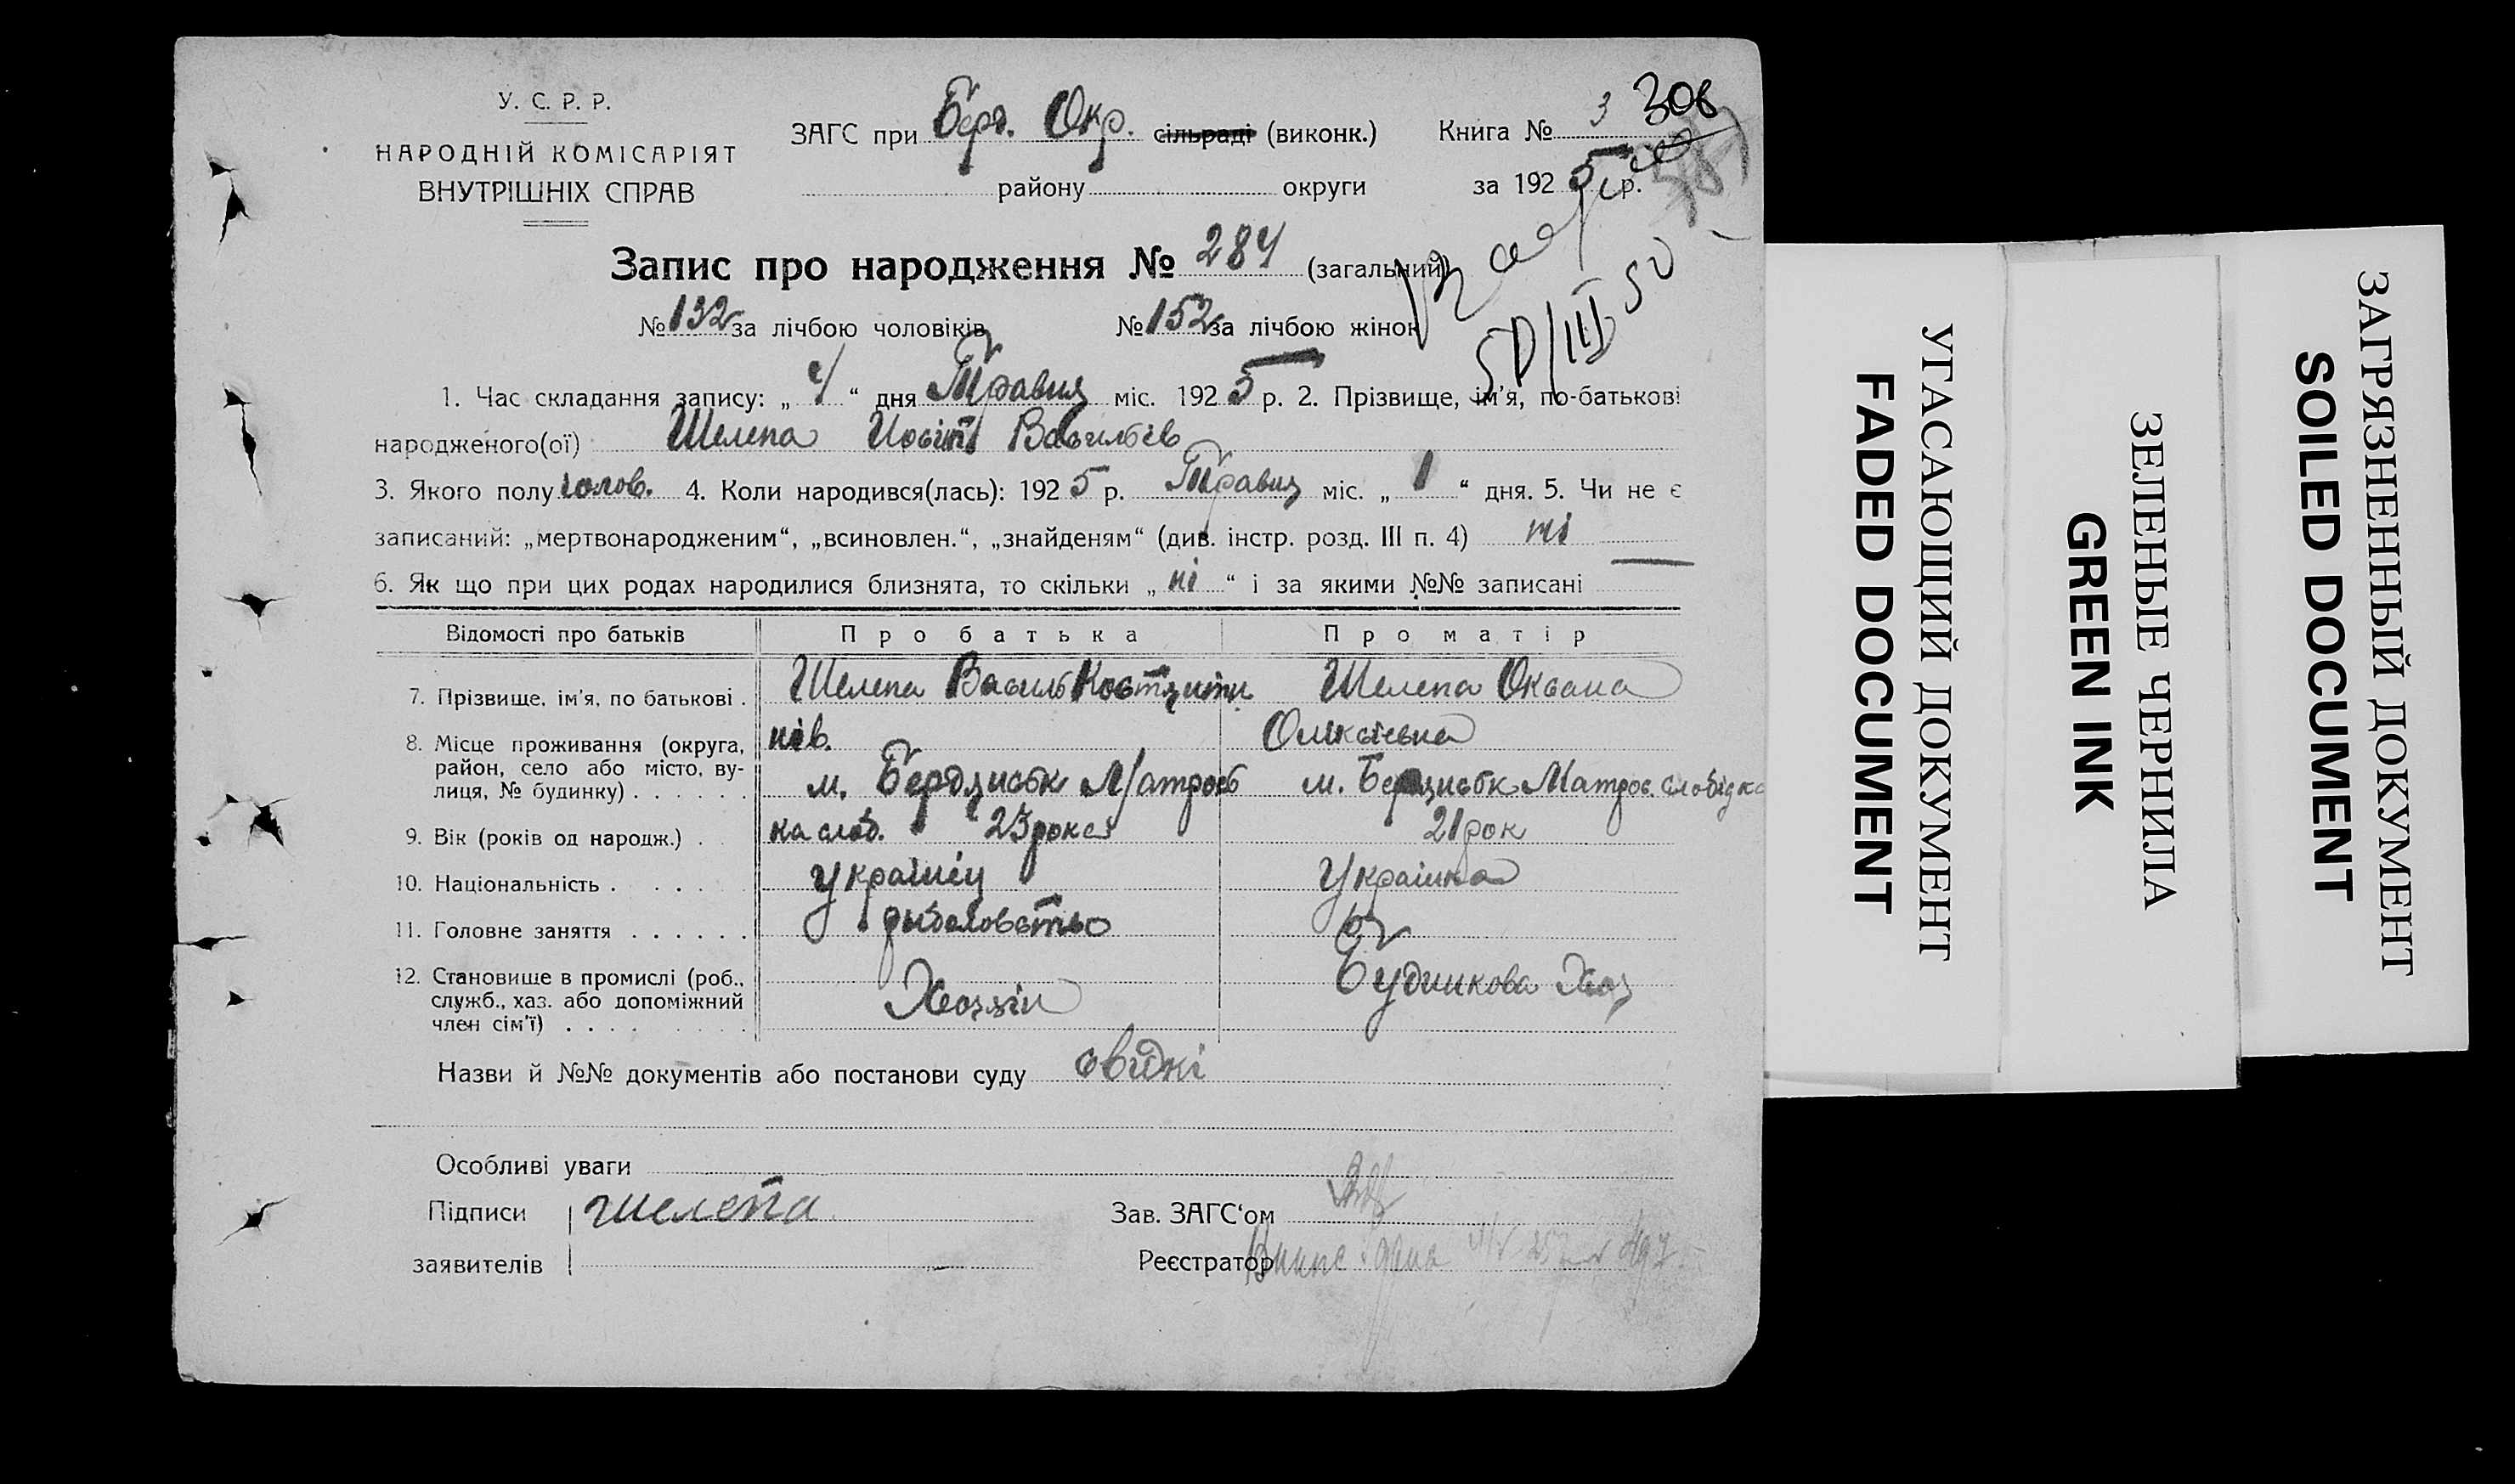 У. С. Р. Р.
НАРОДНІЙ КОМІСАРІЯТ
ВНУТРІШНІХ СПРАВ
ЗАГС при Берд. Окр. сільраді (виконк.)
району округи
Книга № 3 306
за 1925 р.
Запис про народження № 284 (загальний)
№ 132 за лічбою чоловіків № 152 за лічбою жінок
50/III 50
1. Час складання запису: „ 4 “ дня Травня міс. 1925 р. 2. Прізвище, ім'я, по-батькові
народженого(ої) Шелепа Иосіп Васильєв
3. Якого полу чолов. 4. Коли народився(лась): 1925 р. Травня міс. „ 1 “ дня. 5. Чи не є
записаний: „мертвонародженим“, „всиновлен.“, „знайденям“ (див. інстр. розд. III п. 4) ні
6. Як що при цих родах народилися близнята, то скільки „ ні “ і за якими №№ записані
Відомості про батьків Про батька Про матір
7. Прізвище, ім'я, по батькові . Шелепа Василь Костянти нів. Шелепа Оксана
8. Місце проживання (округа, район, село або місто, вулиця, № будинку) . . . . . . м. Бердянськ Матрось ка слоб. м. Бердянськ Матрос. слобідка
9. Вік (років од народж.) . . 23 роки 21 рок
10. Національність . . . . . українец Українка
11. Головне заняття . . . . . . рыболовство
12. Становище в промислі (роб., служб., хаз. або допоміжний член сім'ї) . . . . . . . . Хозяїн Будинкова Хаз
Назви й №№ документів або постанови суду
Особливі уваги
Підписи
заявителів
Шелепа
Зав. ЗАГС'ом
Реєстратор
УГАСАЮЩИЙ ДОКУМЕНТ
FADED DOCUMENT
ЗЕЛЕНЫЕ ЧЕРНИЛА
GREEN INK
ЗАГРЯЗНЕННЫЙ ДОКУМЕНТ
SOILED DOCUMENT